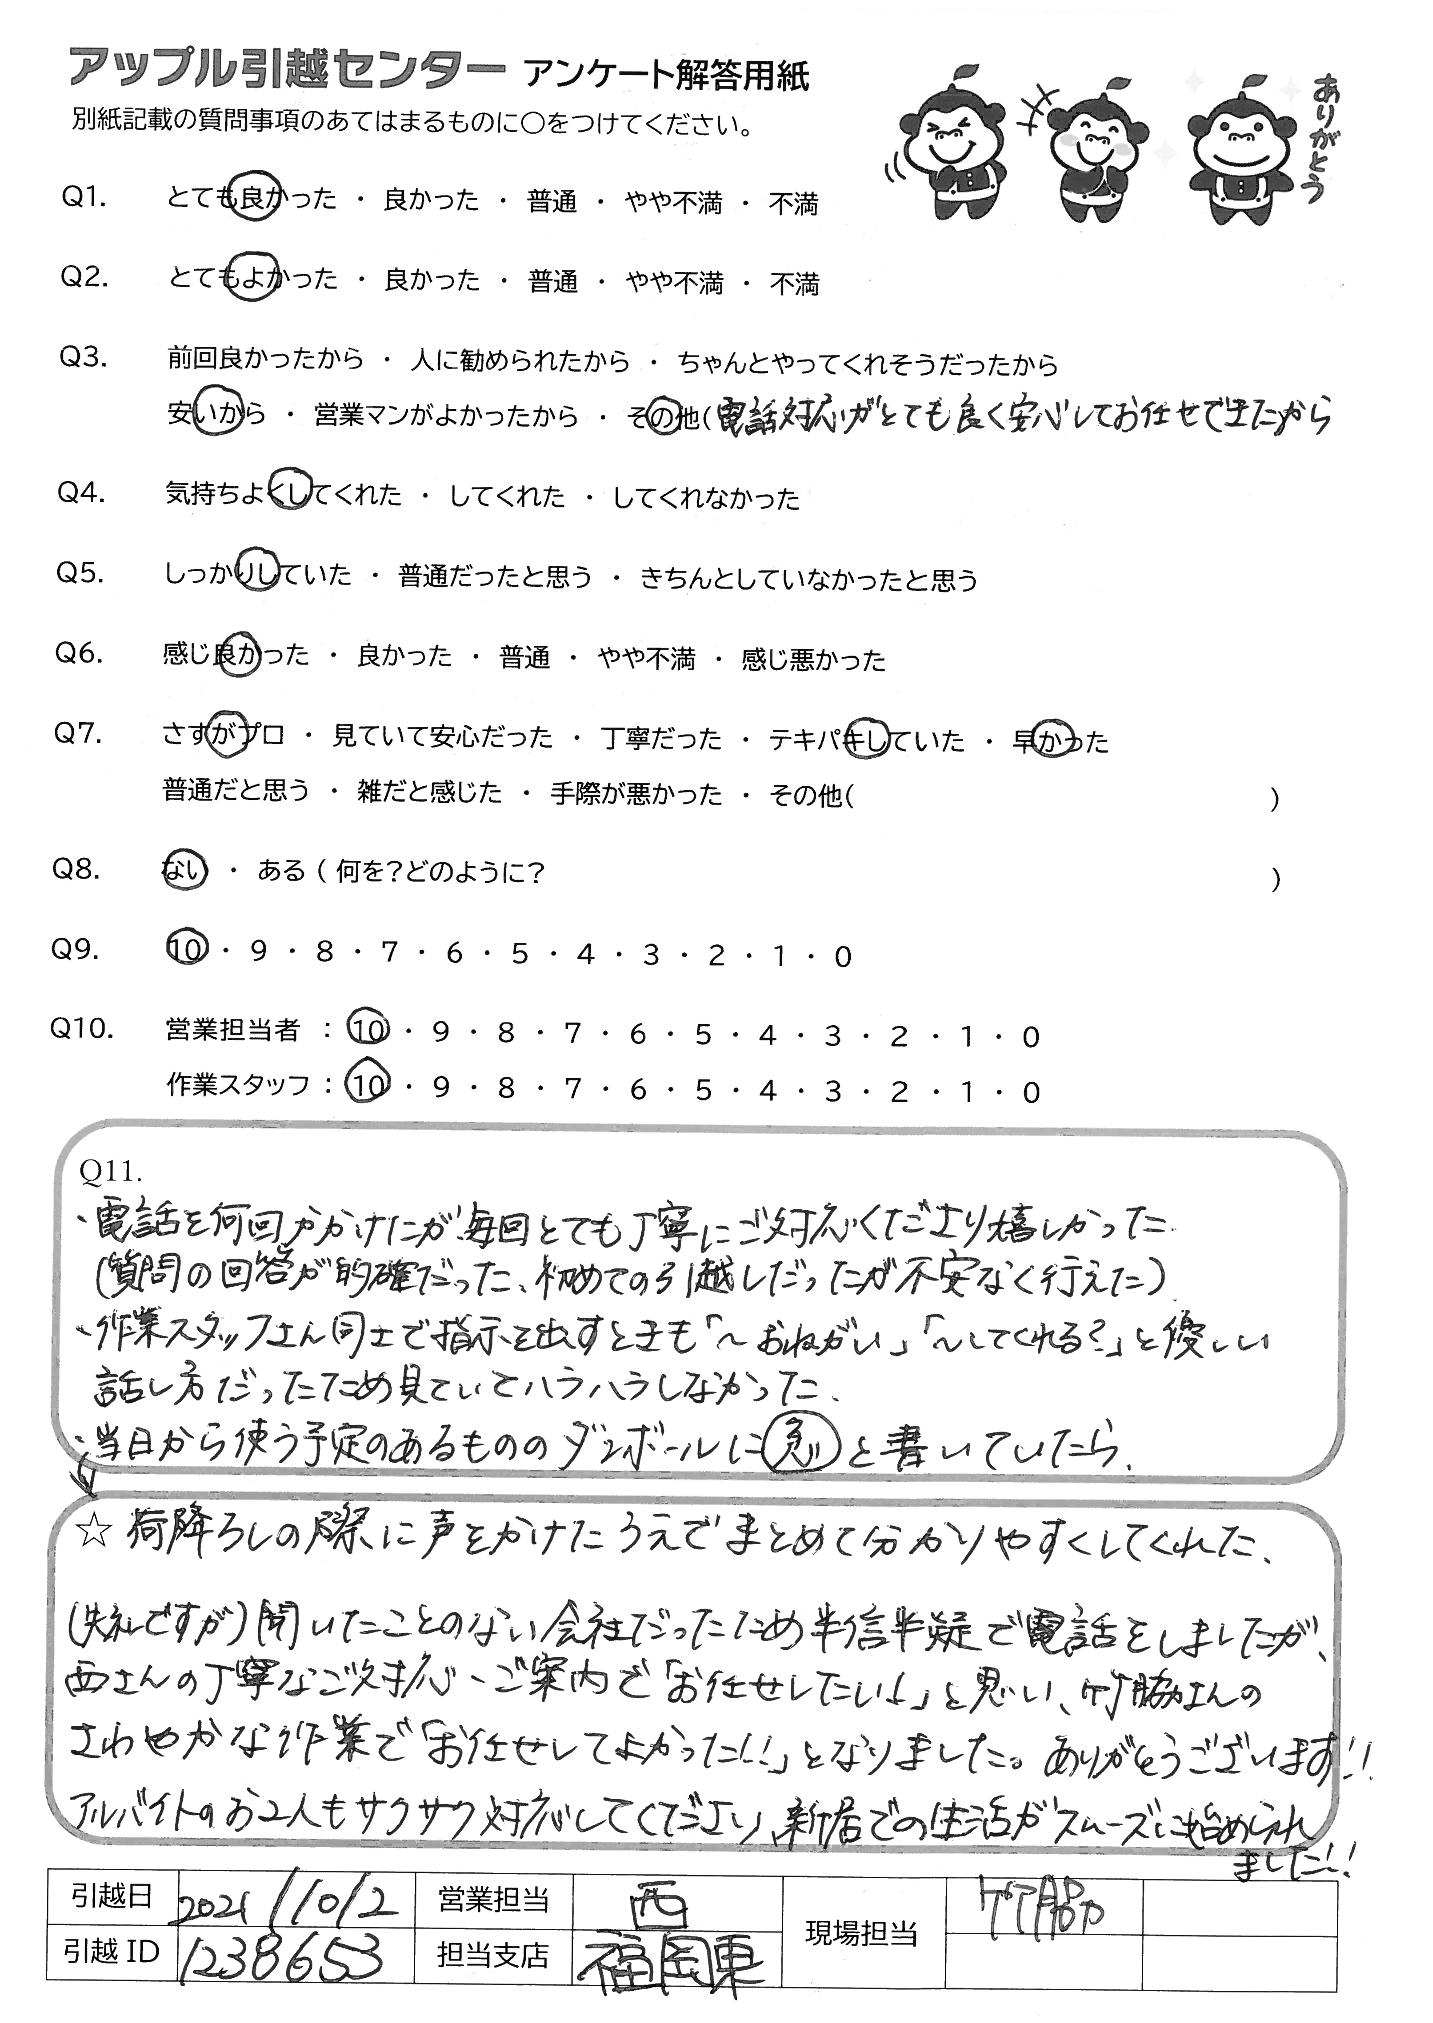 アップル引越センター アンケート解答用紙
別紙記載の質問事項のあてはまるものに○をつけてください。
ありがとう
Q1. とても良かった ・ 良かった ・ 普通 ・ やや不満 ・ 不満
Q2. とてもよかった ・ 良かった ・ 普通 ・ やや不満 ・ 不満
Q3. 前回良かったから ・ 人に勧められたから ・ ちゃんとやってくれそうだったから
安いから ・ 営業マンがよかったから ・ その他( 電話対応がとても良く安心してお任せできたから
Q4. 気持ちよくしてくれた ・ してくれた ・ してくれなかった
Q5. しっかりしていた ・ 普通だったと思う ・ きちんとしていなかったと思う
Q6. 感じ良かった ・ 良かった ・ 普通 ・ やや不満 ・ 感じ悪かった
Q7. さすがプロ ・ 見ていて安心だった ・ 丁寧だった ・ テキパキしていた ・ 早かった
普通だと思う ・ 雑だと感じた ・ 手際が悪かった ・ その他( )
Q8. ない ・ ある ( 何を?どのように? )
Q9. 10 ・ 9 ・ 8 ・ 7 ・ 6 ・ 5 ・ 4 ・ 3 ・ 2 ・ 1 ・ 0
Q10. 営業担当者 : 10 ・ 9 ・ 8 ・ 7 ・ 6 ・ 5 ・ 4 ・ 3 ・ 2 ・ 1 ・ 0
作業スタッフ : 10 ・ 9 ・ 8 ・ 7 ・ 6 ・ 5 ・ 4 ・ 3 ・ 2 ・ 1 ・ 0
Q11.
・電話を何回かかけたが、毎回とても丁寧にご対応くださり嬉しかった
(質問の回答が的確だった、初めての引越しだったが不安なく行えた)
・作業スタッフさん同士で指示を出すときも「〜おねがい」「〜してくれる?」と優しい
話し方だったため見ていてハラハラしなかった、
・当日から使う予定のあるもののダンボールに急と書いていたら、
☆荷降ろしの際に声をかけたうえでまとめて分かりやすくしてくれた、
(失礼ですが)聞いたことのない会社だったため半信半疑で電話をしましたが、
西さんの丁寧なご対応、ご案内で「お任せしたい!」と思い、竹脇さんの
さわやかな作業で「お任せしてよかった!!」となりました。ありがとうございます!!
アルバイトのお2人もサクサク対応してくださり、新居での生活がスムーズに始められ
ました!!
引越日 2021/10/2 営業担当 西 現場担当 竹脇
引越 ID 1238653 担当支店 福岡東